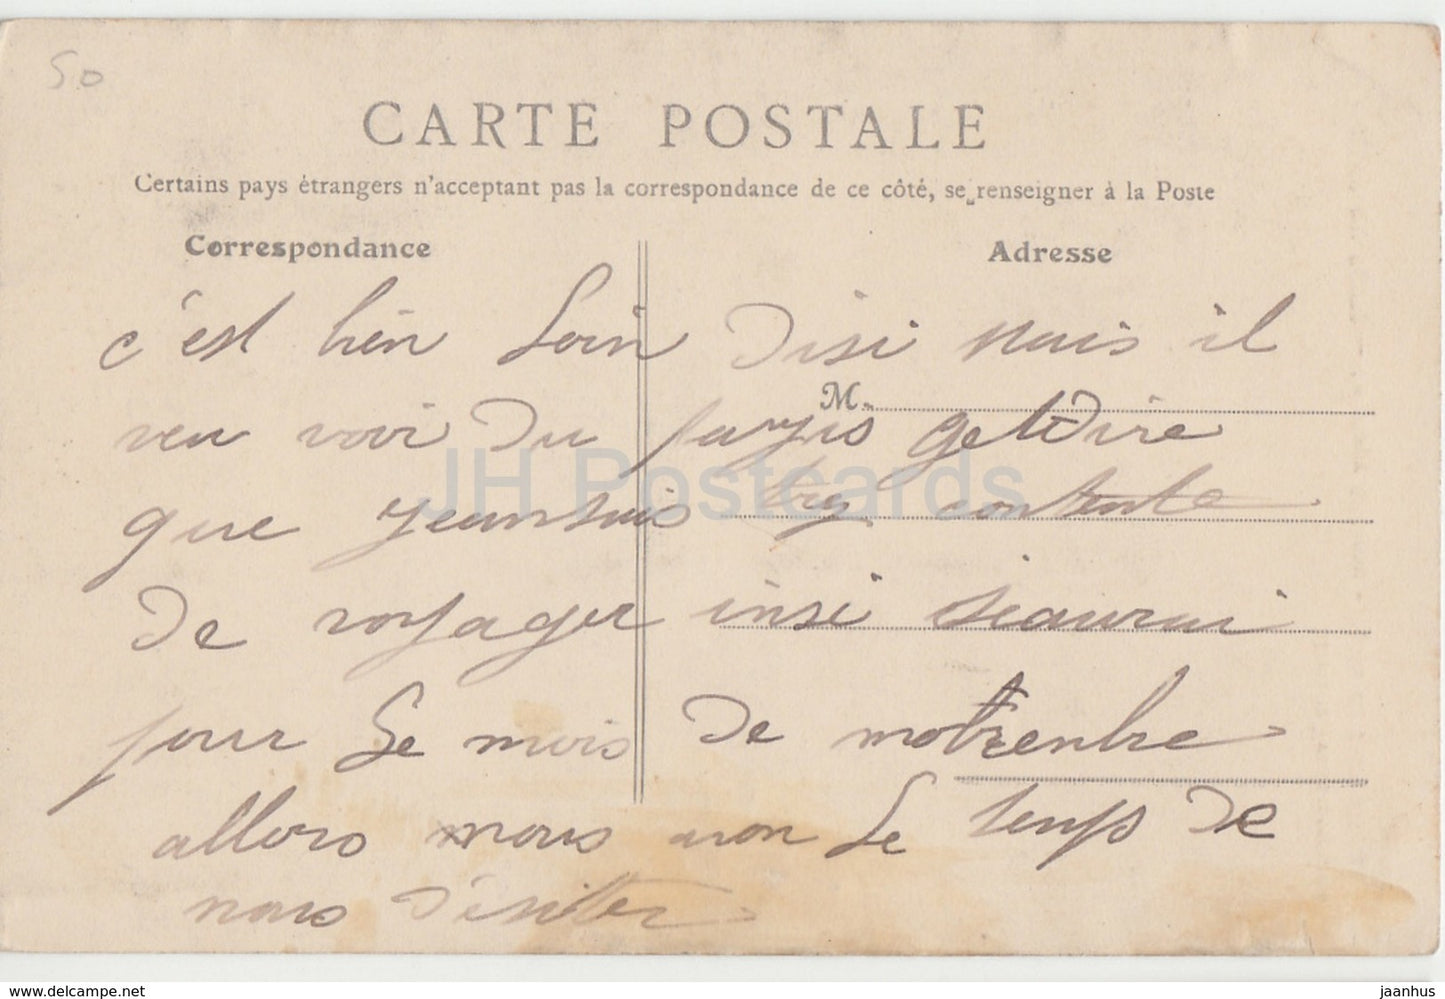 50
CARTE POSTALE
Certains pays étrangers n'acceptant pas la correspondance de ce côté, se renseigner à la Poste
Correspondance
Adresse
M.
c'est bien Loin Disi mais il
veu voir Du payis ge te Dire
que jeansuis tres contente
De voyager insi jeaurai
pour Le mois De
allors nous avon Le temps De
nous D'ésiter
JH Postcards
www.delcampe.net
jaanhus